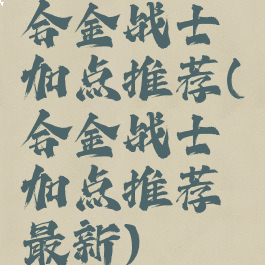 合金战士
加点推荐(
合金战士
加点推荐
最新)